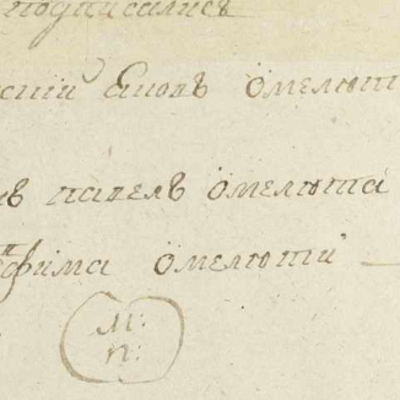 подписались
Яковъ омелют
павелъ омелюта
фима омелюти
М:
п: